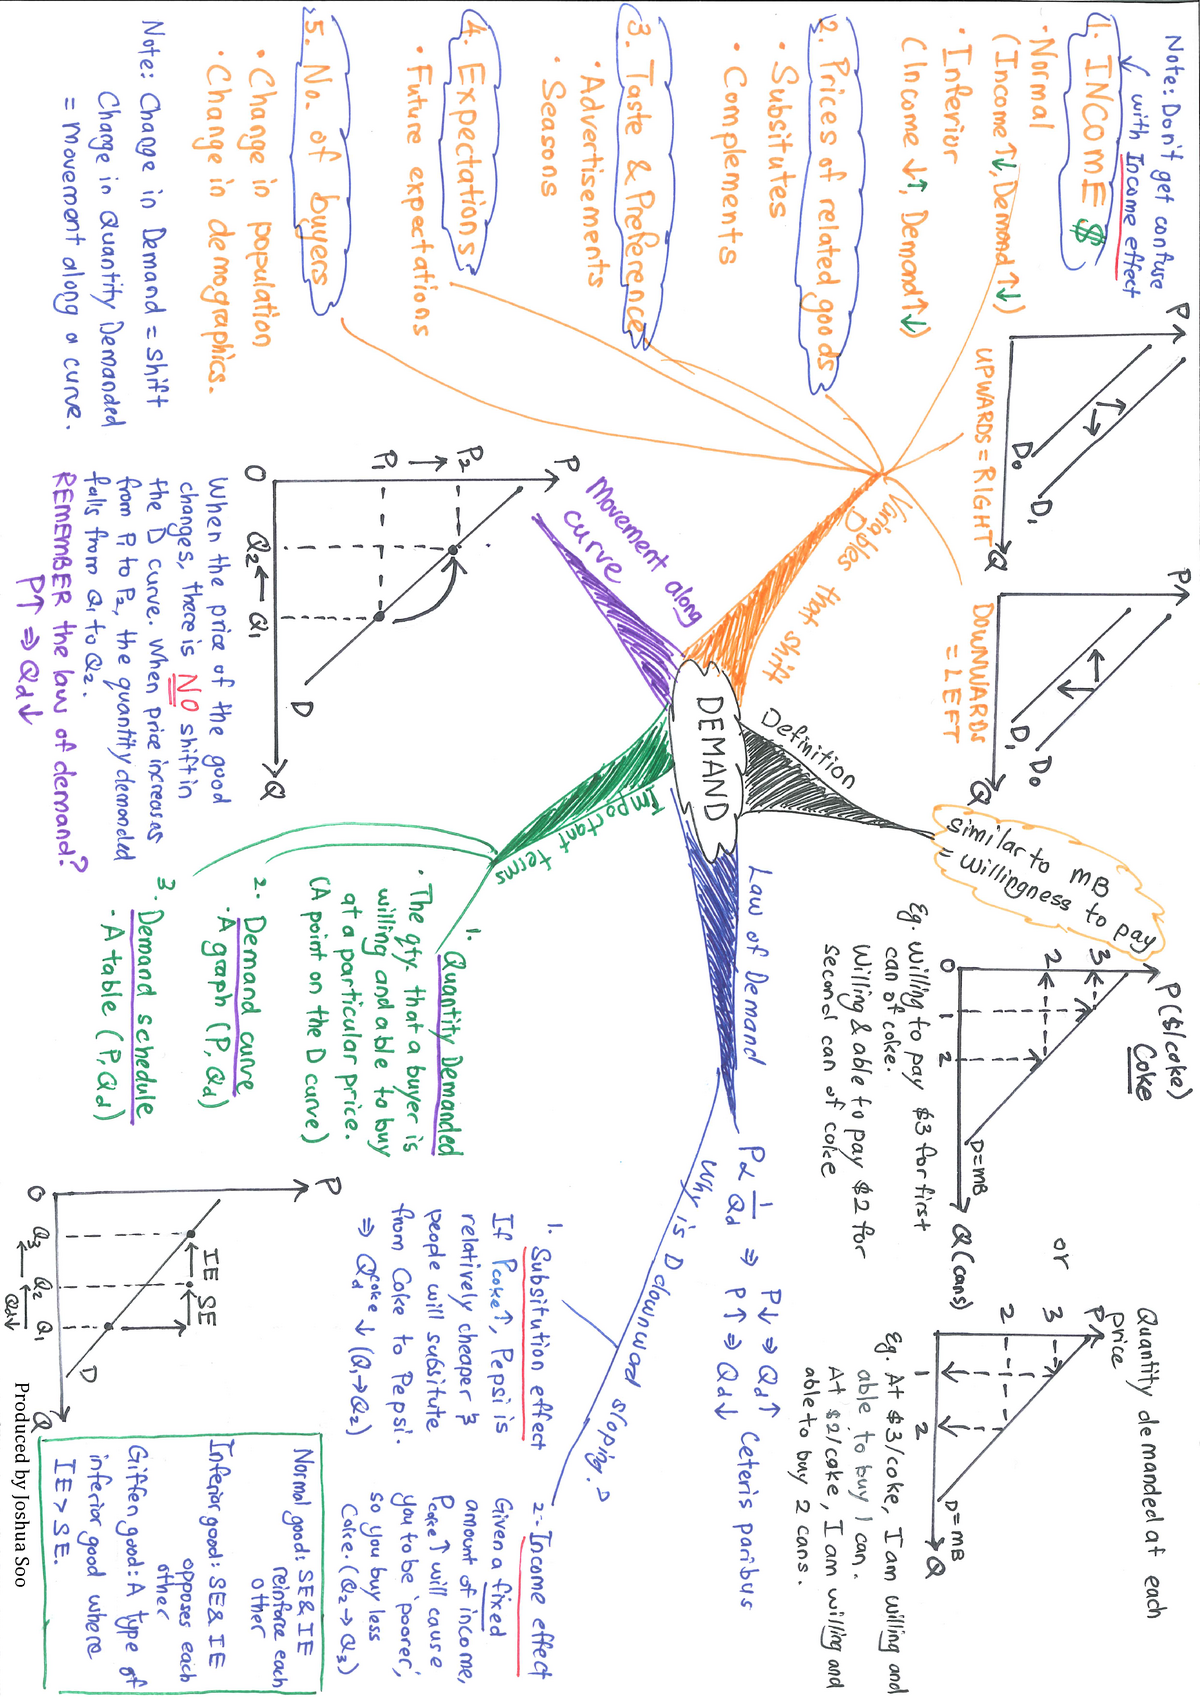 Note: Don't get confuse
with Income effect
1. INCOME $
· Normal
(Income ↑↓, Demand ↑↓)
· Inferior
(Income ↓↑, Demand ↑↓)
2. Prices of related goods
· Subsitutes
· Complements
3. Taste & Preference
· Advertisements
· Seasons
4. Expectations
· Future expectations
5. No. of buyers
· Change in population
· Change in demographics.
Note: Change in Demand = shift
Change in Quantity Demanded
= movement along a curve.
P
D₀
D₁
Q
UPWARDS = RIGHT
P
D₁
D₀
Q
DOWNWARDS
= LEFT
Variables that shift
D
DEMAND
Definition
similar to MB
= willingness to pay
P($/coke)
Coke
3
2
0
1
2
D=MB
Q(cans)
Eg. Willing to pay $3 for first
can of coke.
Willing & able to pay $2 for
second can of coke
or
Quantity demanded at each
price
P
3
2
1
2
D=MB
Q
Eg. At $3/coke, I am willing and
able to buy 1 can.
At $2/coke, I am willing and
able to buy 2 cans.
Movement along
curve
P
P₂
P₁
0
Q₂ ← Q₁
D
Q
When the price of the good
changes, there is NO shift in
the D curve. When price increases
from P₁ to P₂, the quantity demanded
falls from Q₁ to Q₂.
REMEMBER the law of demand?
P↑ ⇒ Qd↓
Important terms
1. Quantity Demanded
· The qty. that a buyer is
willing and able to buy
at a particular price.
(A point on the D curve)
2. Demand curve
· A graph (P, Qd)
3. Demand schedule
· A table (P, Qd)
Law of Demand
P∝ 1/Qd ⇒ P↓ ⇒ Qd↑
P↑ ⇒ Qd↓
Ceteris paribus
Why is D downward sloping?
1. Subsitution effect
If Pcoke↑, Pepsi is
relatively cheaper &
people will subsitute
from Coke to Pepsi.
⇒ Qd coke ↓ (Q₁→Q₂)
2. Income effect
Given a fixed
amount of income,
Pcoke↑ will cause
you to be 'poorer',
so you buy less
Coke. (Q₂→Q₃)
P
IE
SE
D
0
Q₃
Q₂
Q₁
Qd↓
Q
Normal good: SE & IE
reinforce each
other
Inferior good: SE & IE
opposes each
other
Giffen good: A type of
inferior good where
IE > SE.
Produced by Joshua Soo